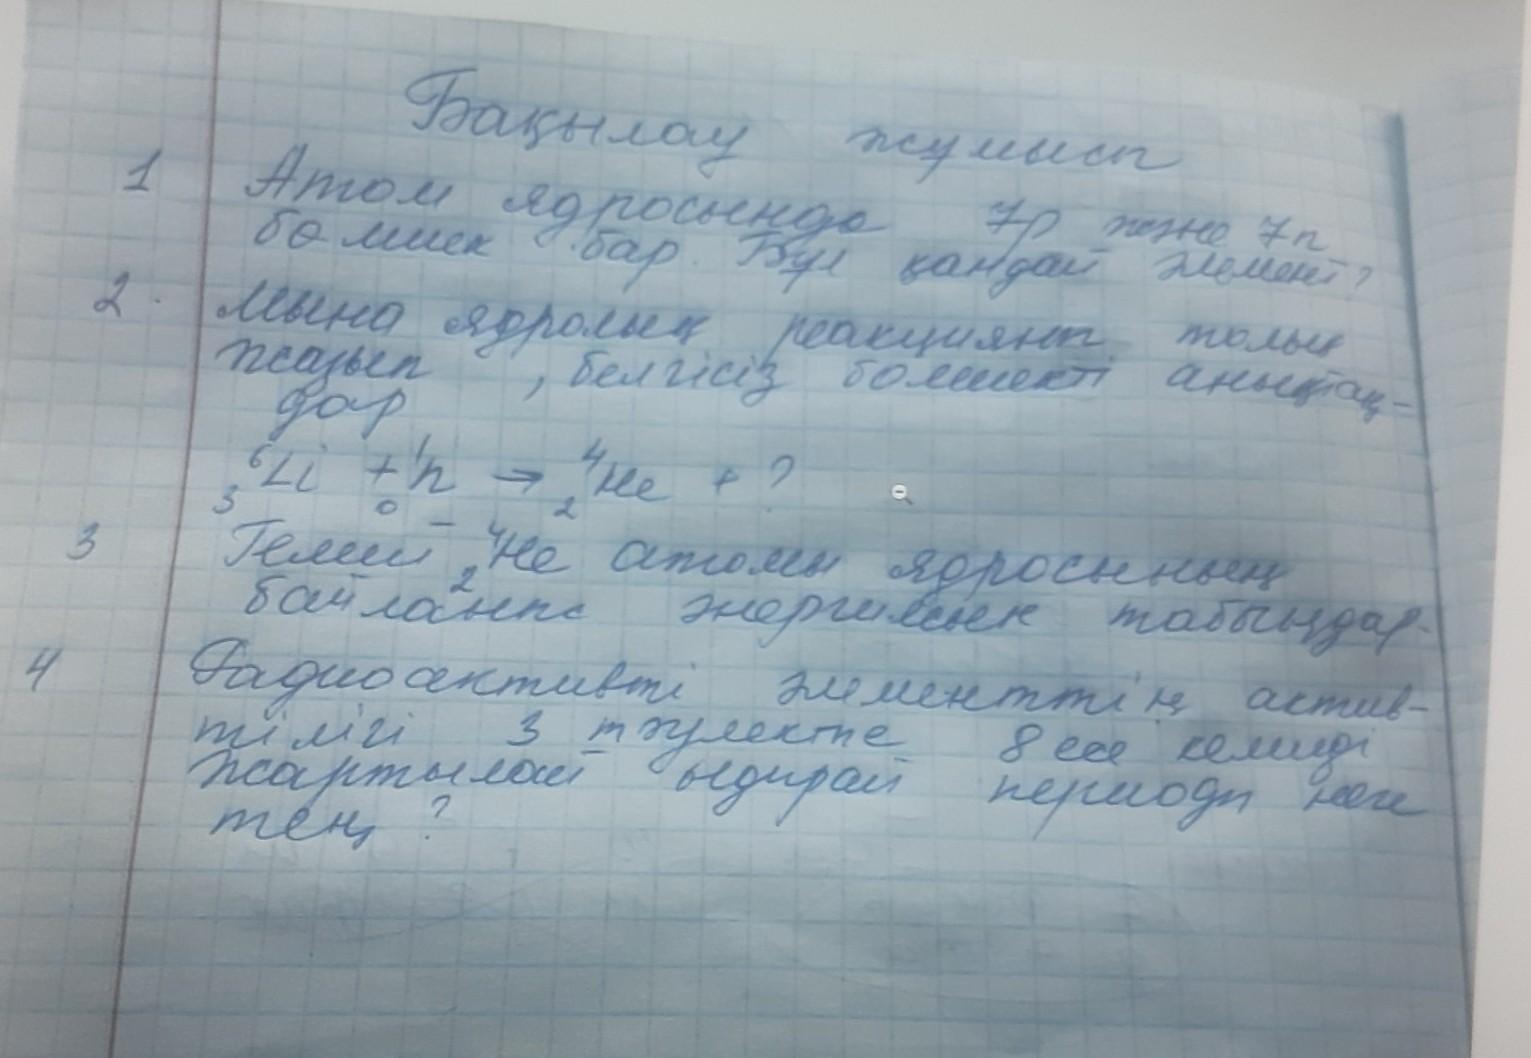 Бақылау жұмысы
1 Атом ядросында 7p және 7n
бөлшек бар. Бұл қандай элемент?
2. Мына ядролық реакцияны толық
жазып, белгісіз бөлшекті анықтаң-
дар
⁶₃Li + ¹₀n → ⁴₂He + ?
3 Гелий ⁴₂He атомы ядросының
байланыс энергиясын табыңдар.
4 Радиоактивті элементтің актив-
тілігі 3 тәулекте 8 есе кеміді
Жартылай ыдырай периоды неге
тең?